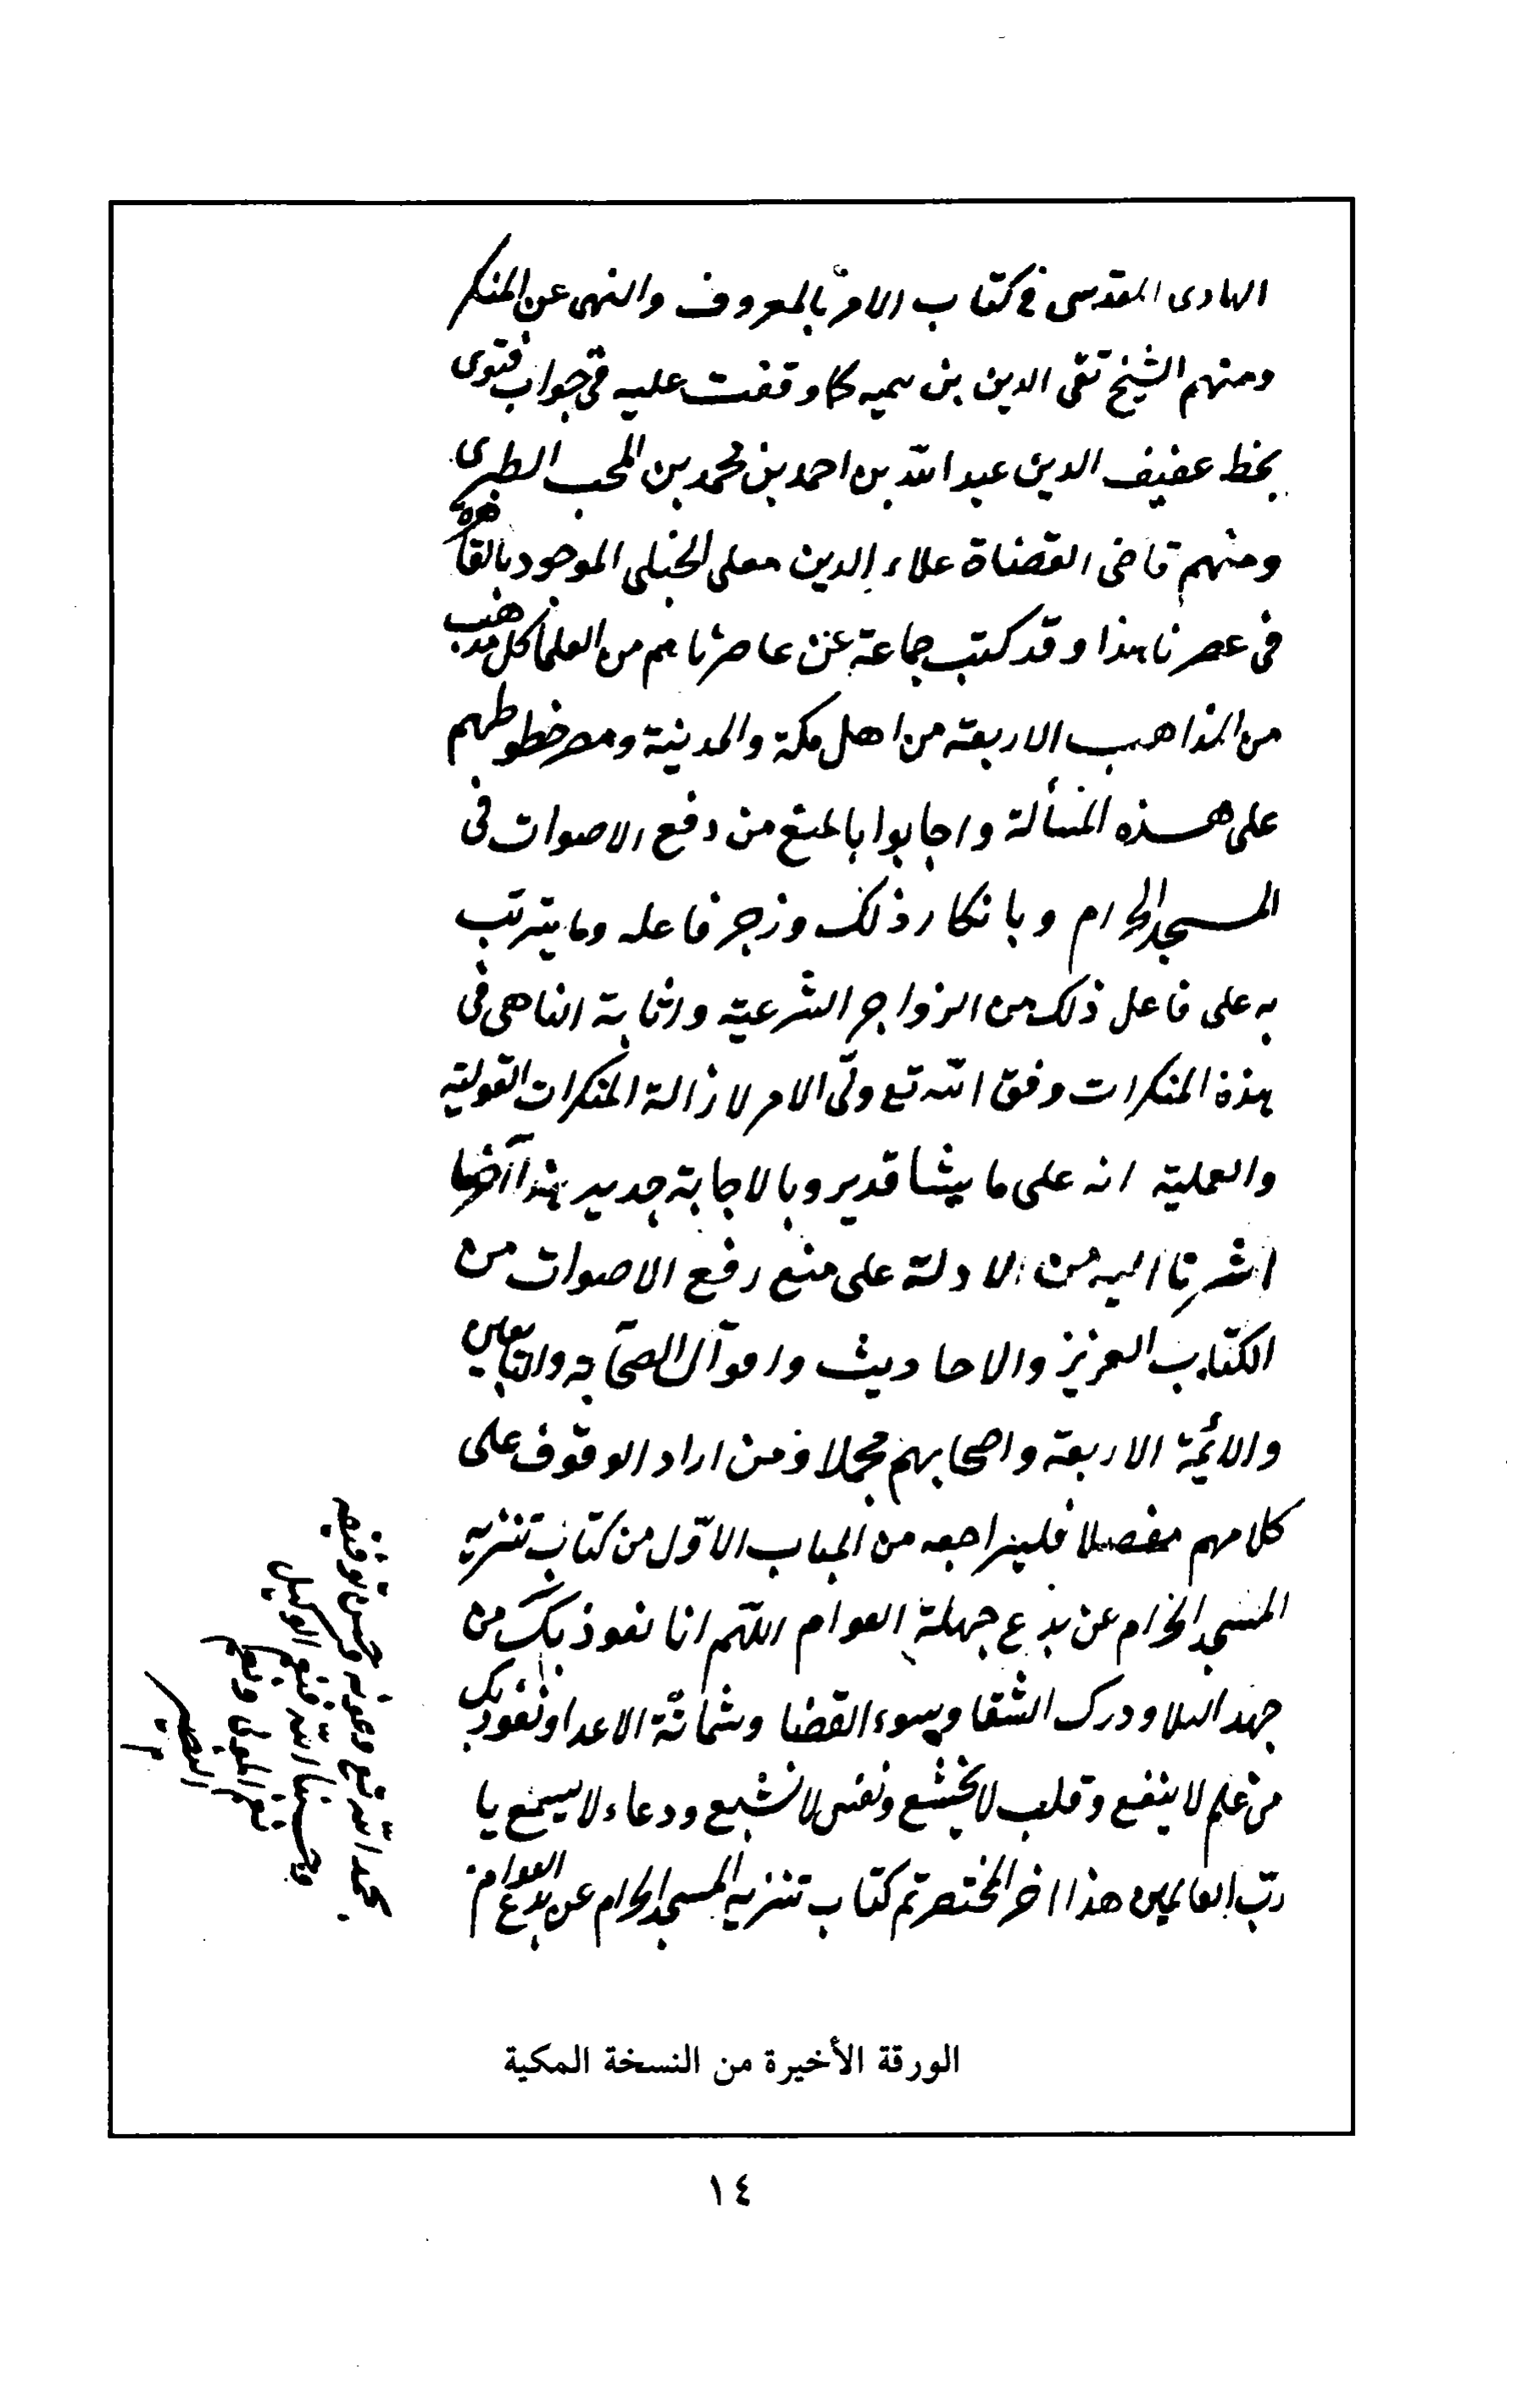 الهادى المقدسى فى كتاب الامر بالمعروف والنهى عن المنكر
ومنهم الشيخ تقى الدين بن تيميه كما وقفت عليه فى جواب فتوى
بخط عفيف الدين عبد الله بن احمد بن محمد بن المحب الطبرى
ومنهم قاضى القضاة علاء الدين معلى الحنبلى الموجود بالقاهرة
فى عصرنا هذا وقد كتب جماعة عن عاصرناهم من العلما كل مذهب
من المذاهب الاربعة من اهل مكة والمدينة ومصر خطوطهم
على هذه المسألة واجابوا بالمنع من رفع الاصوات فى
المسجد الحرام وبانكار ذلك وزجر فاعله وما يترتب
به على فاعل ذلك من الزواجر الشرعية واثابة الناهى فى
هذة المنكرات وفق الله تع ولّى الامر لازالة المنكرات القولية
والعملية انه على ما يشا قدير وبالاجابة جدير هذا آخر ما
اشرنا اليه من الادلة على منع رفع الاصوات من
الكتاب العزيز والاحاديث واقوال الصحابة والتابعين
والائمة الاربعة واصحابهم مجملا ومن اراد الوقوف على
كلامهم مفصلا فليراجعه من الباب الاوّل من كتاب تنزيه
المسجد الحرام عن بدع جهلة العوام اللهم انا نعوذ بك من
جهد البلا ودرك الشقا وسوء القضا وشماتة الاعدا ونعوذ بك
من علم لا ينفع وقلب لا يخشع ونفس لا تشبع ودعاء لا يسمع يا
ربّ العالمين هذا اخر المختصر تم كتاب تنزيه المسجد الحرام عن بدع العوام
بحمد الله تع وعونه وحسن توفيقه
وحسبنا الله ونعم الوكيل
نعم المولى ونعم
النصير
الورقة الأخيرة من النسخة المكية
١٤